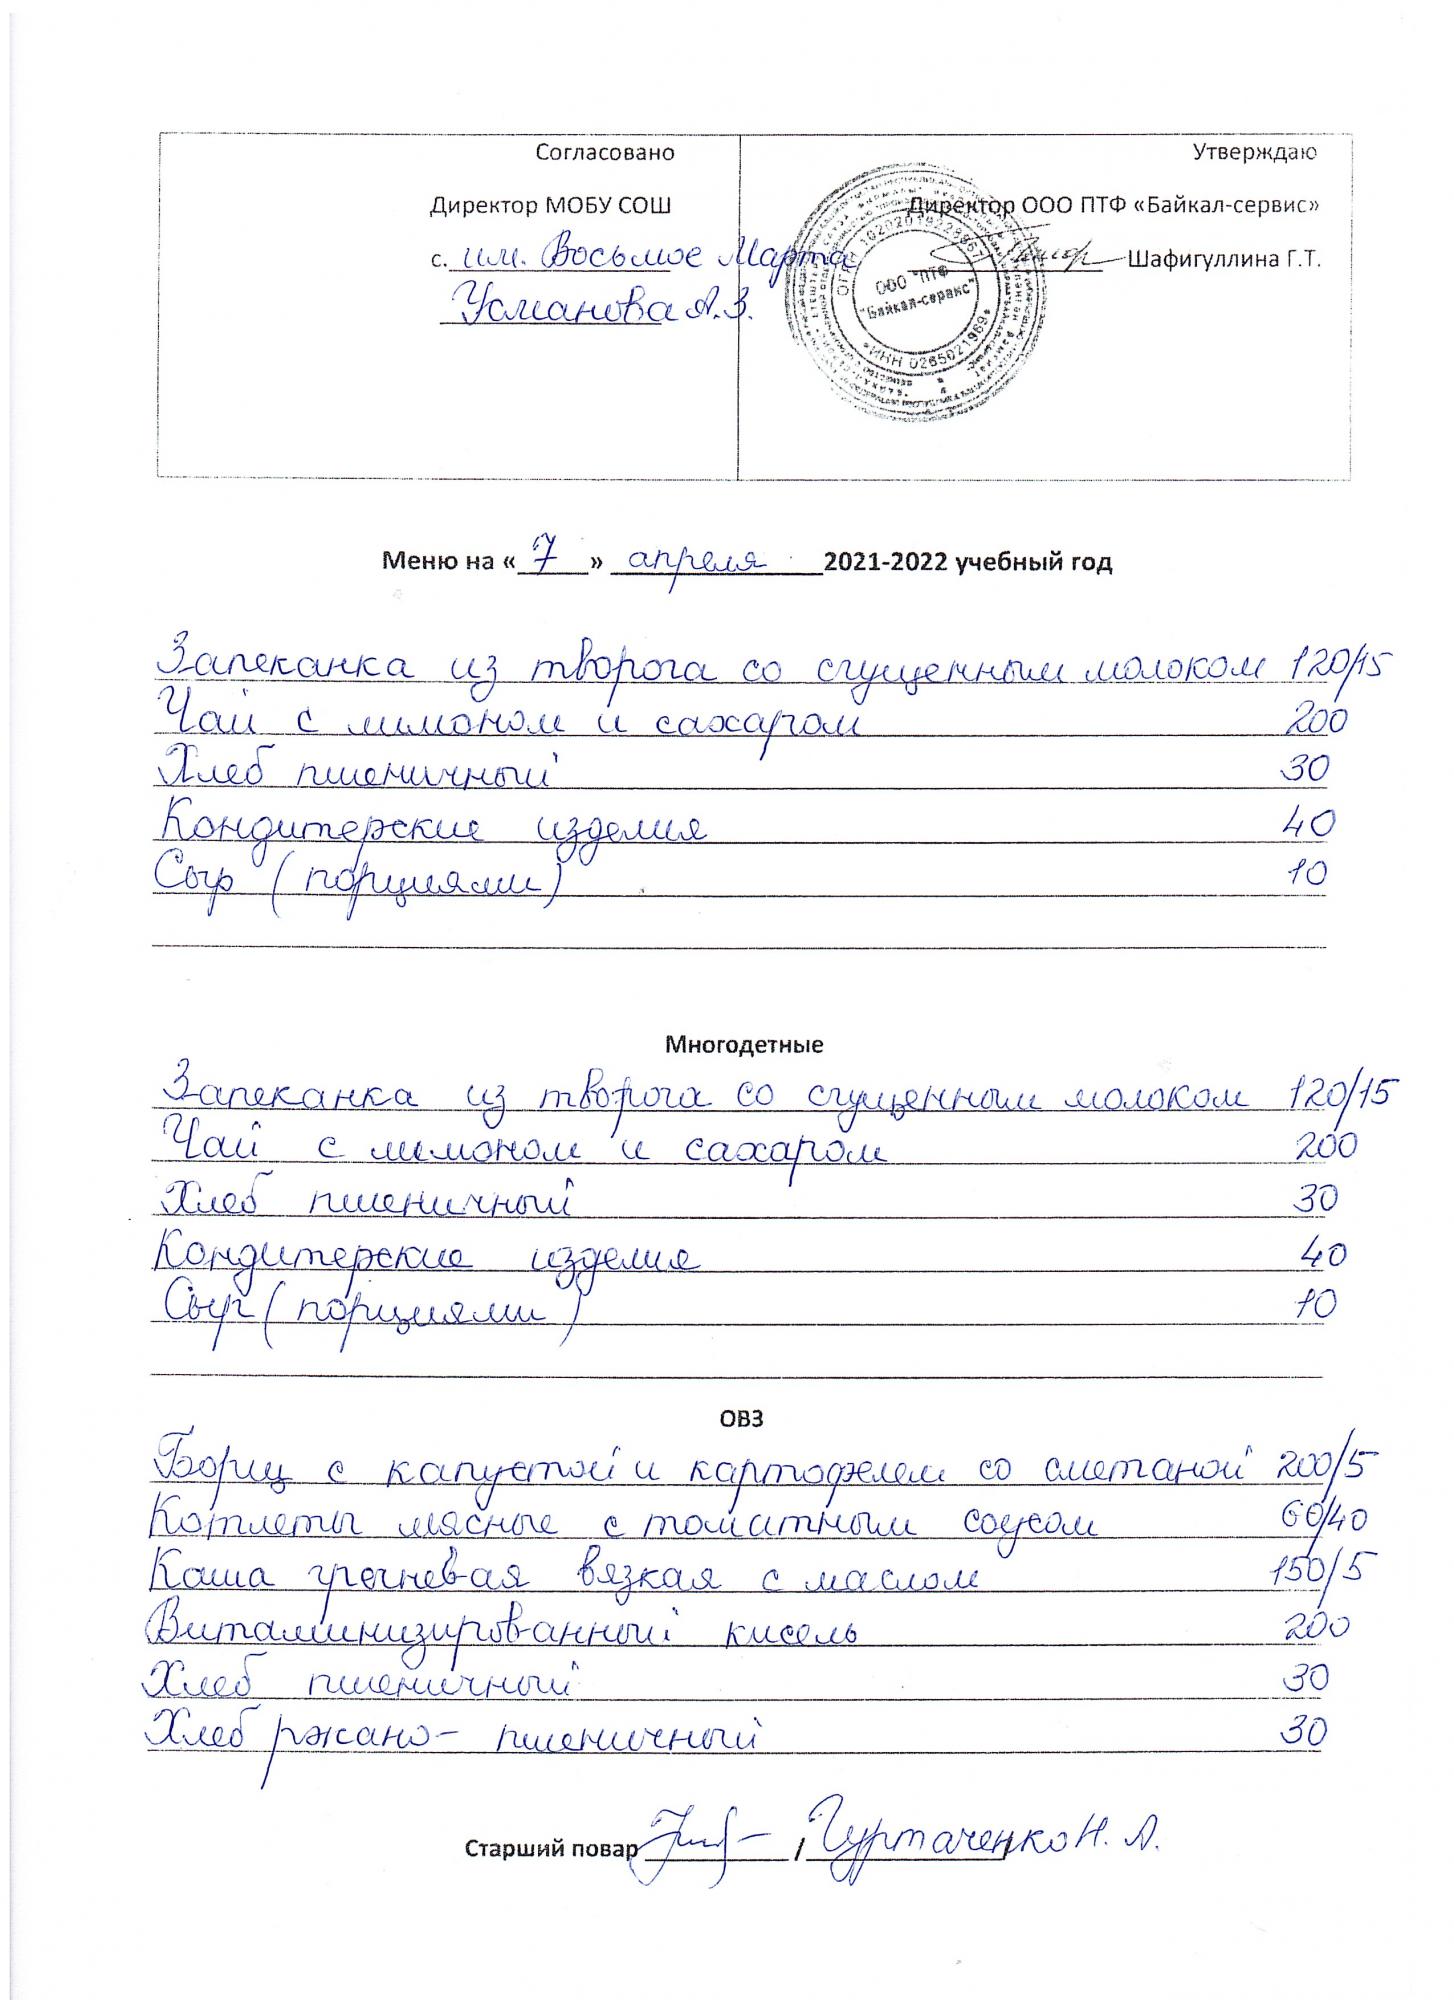 Согласовано
Директор МОБУ СОШ
с. им. Восьмое Марта
Усманова А.З.
Утверждаю
Директор ООО ПТФ «Байкал-сервис»
Шафигуллина Г.Т.
ООО "ПТФ
"Байкал-сервис"
ИНН 0265021969
Меню на «7» апреля 2021-2022 учебный год
Запеканка из творога со сгущенным молоком 120/15
Чай с лимоном и сахаром 200
Хлеб пшеничный 30
Кондитерские изделия 40
Сыр (порциями) 10
Многодетные
Запеканка из творога со сгущенным молоком 120/15
Чай с лимоном и сахаром 200
Хлеб пшеничный 30
Кондитерские изделия 40
Сыр (порциями) 10
ОВЗ
Борщ с капустой и картофелем со сметаной 200/5
Котлеты мясные с томатным соусом 60/40
Каша гречневая вязкая с маслом 150/5
Витаминизированный кисель 200
Хлеб пшеничный 30
Хлеб ржано- пшеничный 30
Старший повар / Гуртаченко Н. А. /